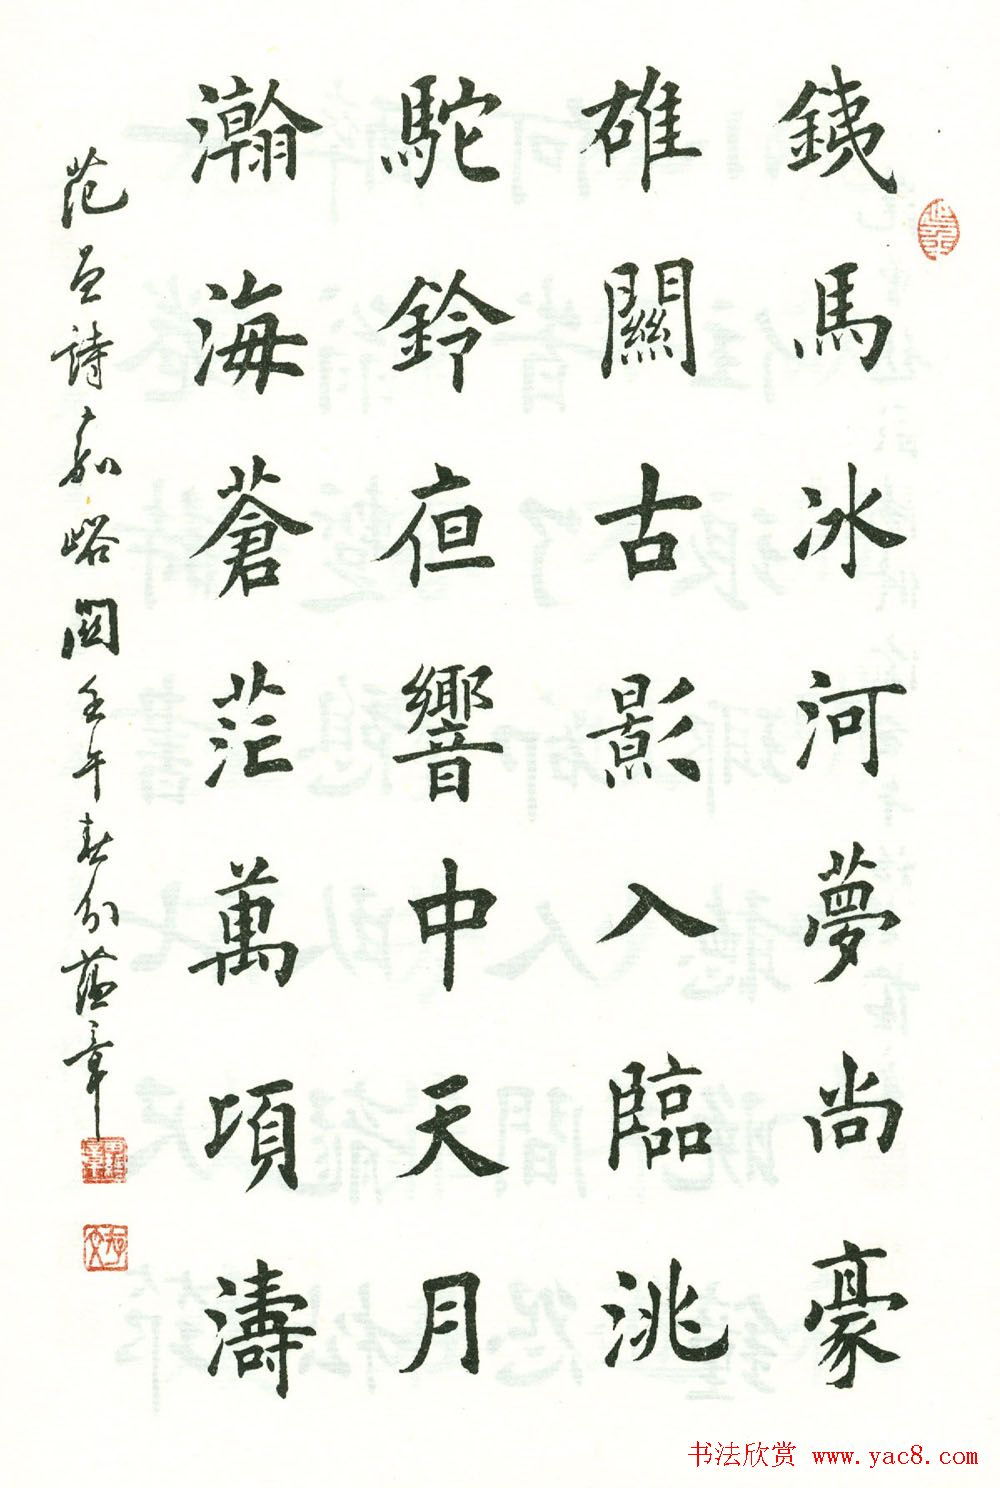 銕馬冰河夢尚豪
雄關古影入臨洮
駝鈴亱響中天月
瀚海蒼茫萬頃濤
范詩嘉峪關壬午春分章
书法欣赏 www.yac8.com